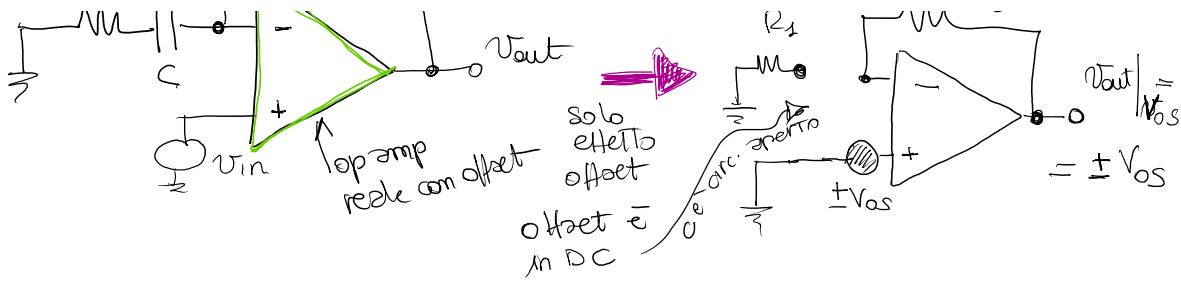 C
-
+
Vin
Vout
op amp
reale con offset
solo
effetto
offset
offset è
in DC
C è circ. aperto
R1
-
+
±Vos
Vout|Vos =
= ± Vos